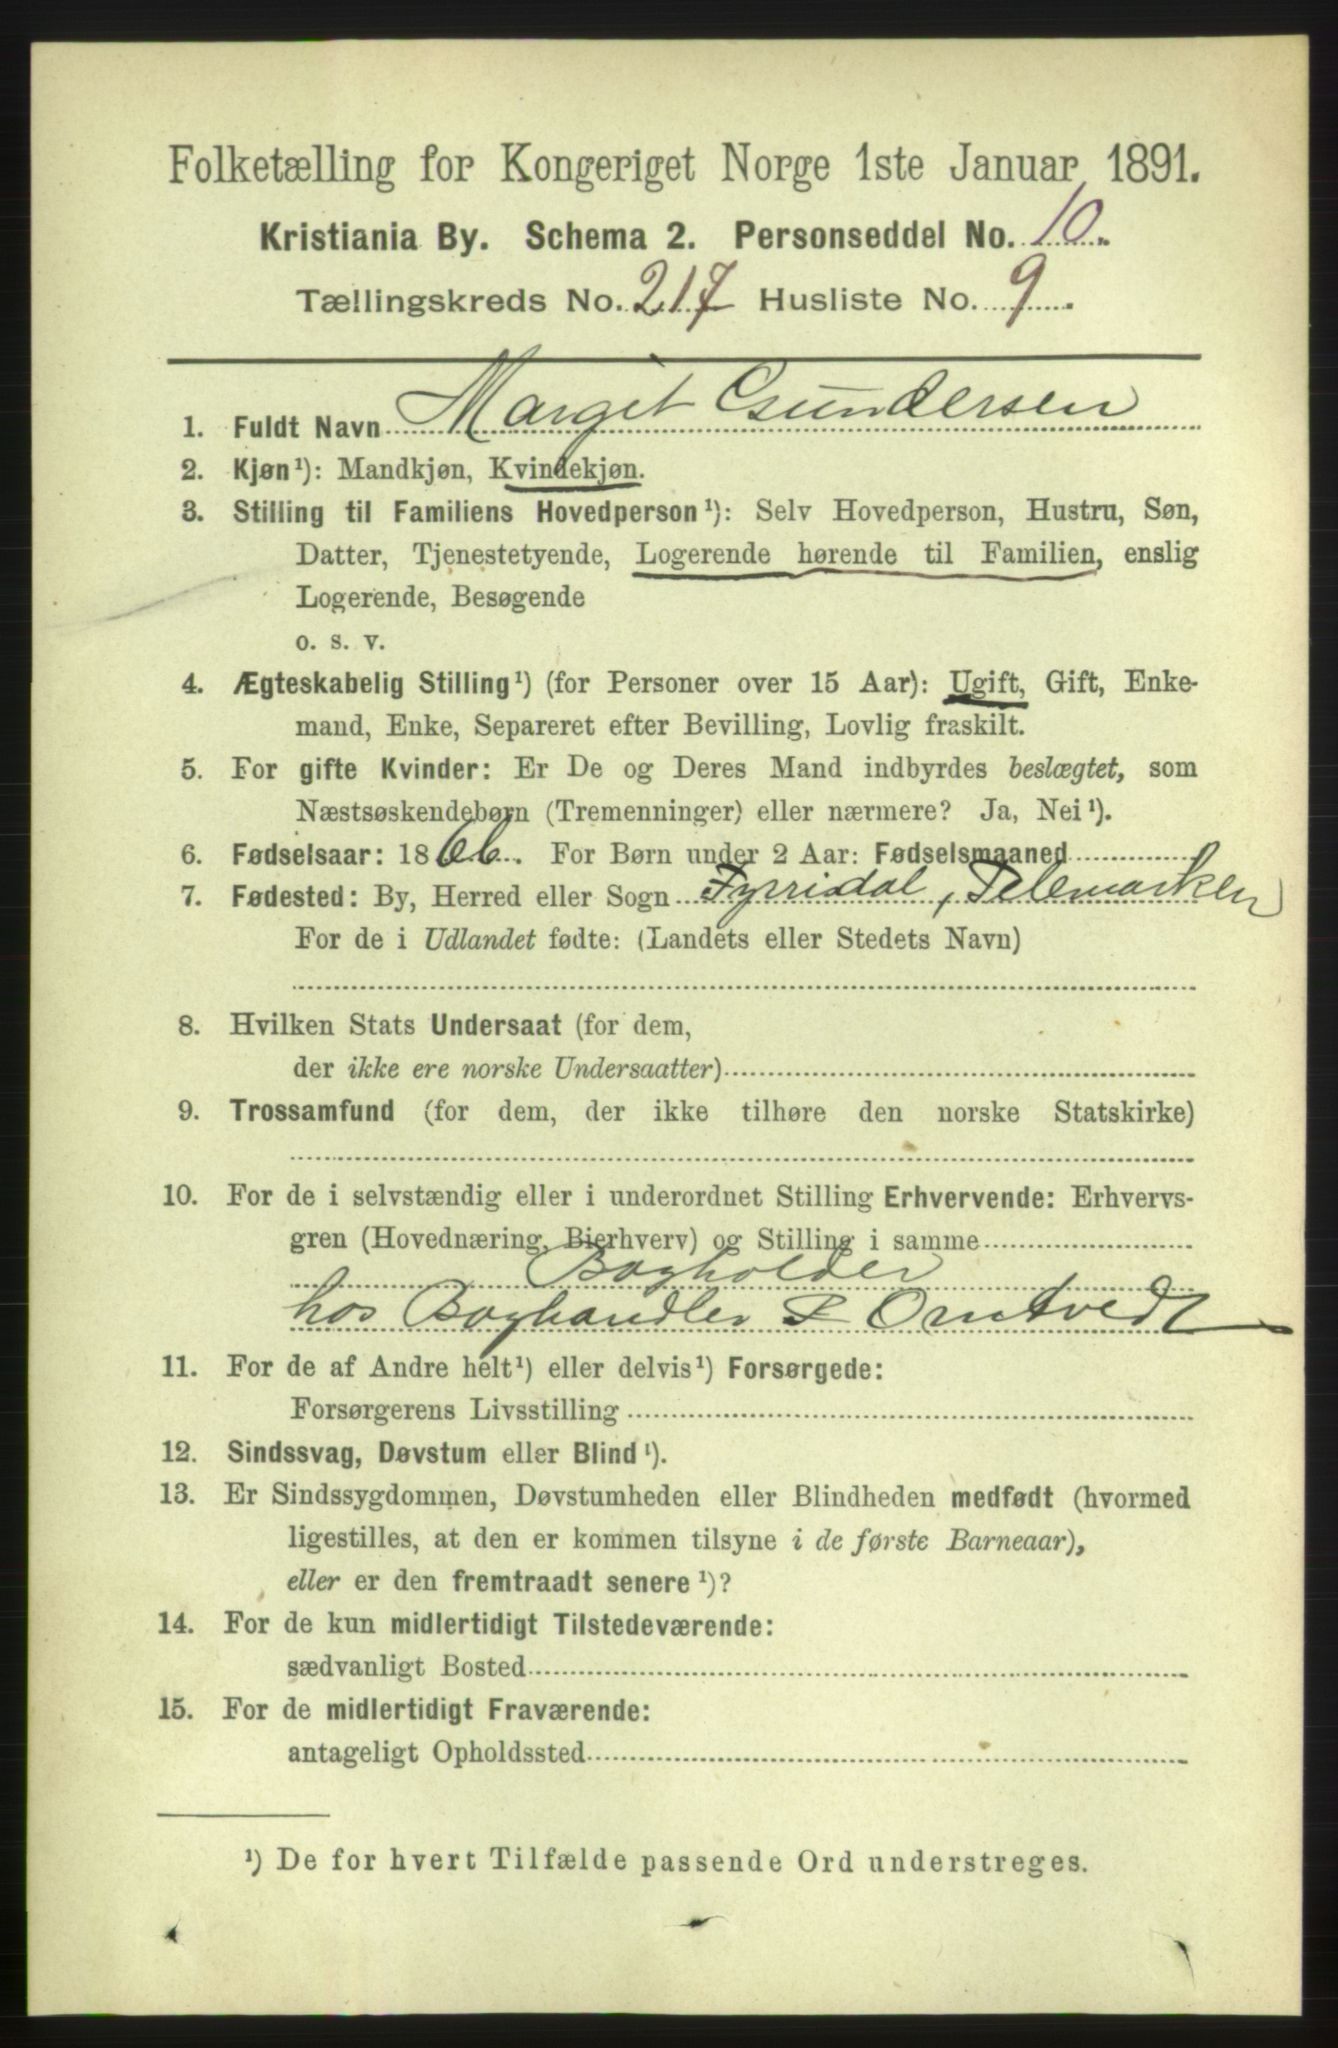 Folketælling for Kongeriget Norge 1ste Januar 1891.
Kristiania By. Schema 2. Personseddel No. 10.
Tællingskreds No. 217 Husliste No. 9.
1. Fuldt Navn Margit Gundersen
2. Kjøn¹): Mandkjøn, Kvindekjøn.
3. Stilling til Familiens Hovedperson¹): Selv Hovedperson, Hustru, Søn,
Datter, Tjenestetyende, Logerende hørende til Familien, enslig
Logerende, Besøgende
o. s. v.
4. Ægteskabelig Stilling¹) (for Personer over 15 Aar): Ugift, Gift, Enke-
mand, Enke, Separeret efter Bevilling, Lovlig fraskilt.
5. For gifte Kvinder: Er De og Deres Mand indbyrdes beslægtet, som
Næstsøskendebørn (Tremenninger) eller nærmere? Ja, Nei¹).
6. Fødselsaar: 1866. For Børn under 2 Aar: Fødselsmaaned
7. Fødested: By, Herred eller Sogn Fyrrisdal, Telemarken
For de i Udlandet fødte: (Landets eller Stedets Navn)
8. Hvilken Stats Undersaat (for dem,
der ikke ere norske Undersaatter)
9. Trossamfund (for dem, der ikke tilhøre den norske Statskirke)
10. For de i selvstændig eller i underordnet Stilling Erhvervende: Erhvervs-
gren (Hovednæring, Bierhverv) og Stilling i samme
Bogholder
hos Boghandler Omtvedt
11. For de af Andre helt¹) eller delvis¹) Forsørgede:
Forsørgerens Livsstilling
12. Sindssvag, Døvstum eller Blind¹).
13. Er Sindssygdommen, Døvstumheden eller Blindheden medfødt (hvormed
ligestilles, at den er kommen tilsyne i de første Barneaar),
eller er den fremtraadt senere¹)?
14. For de kun midlertidigt Tilstedeværende:
sædvanligt Bosted
15. For de midlertidigt Fraværende:
antageligt Opholdssted
¹) De for hvert Tilfælde passende Ord understreges.